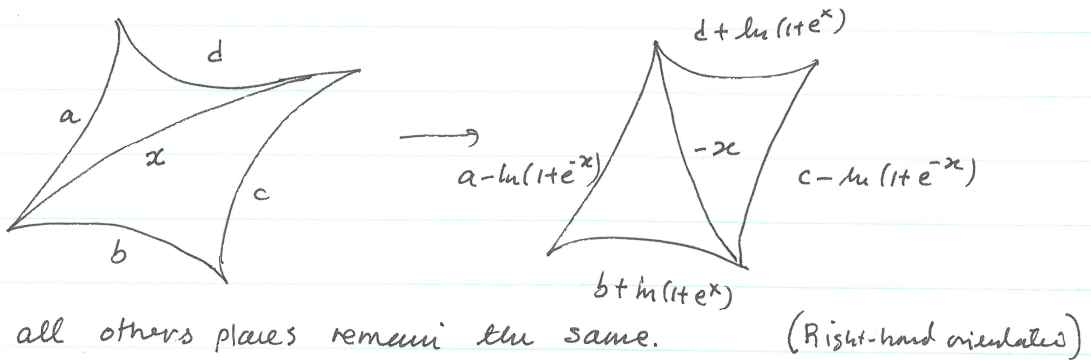 d + ln(1+e^x)
d
a
x
-x
a-ln(1+e^-x)
c - ln(1+e^-x)
c
b
b + ln(1+e^x)
all others places remain the same. (Right-hand orientated)